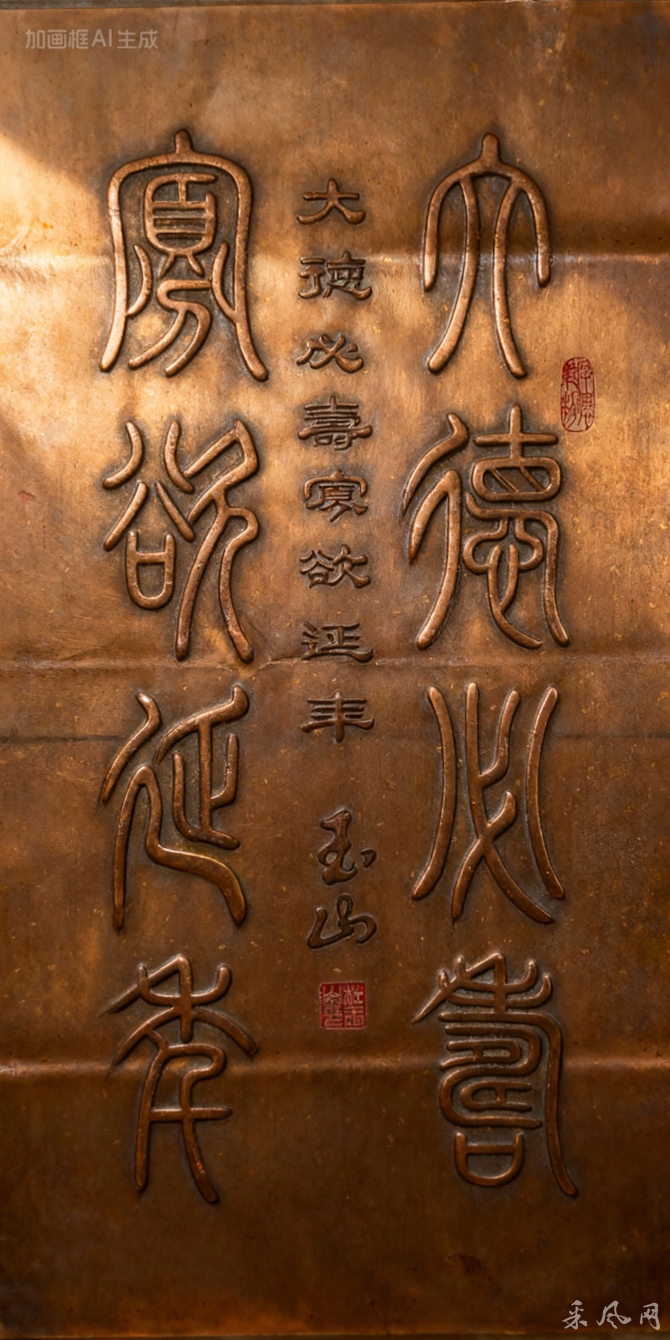 加画框AI生成
大德必壽
大德必壽寡欲延年
玉山
寡欲延年
采风网